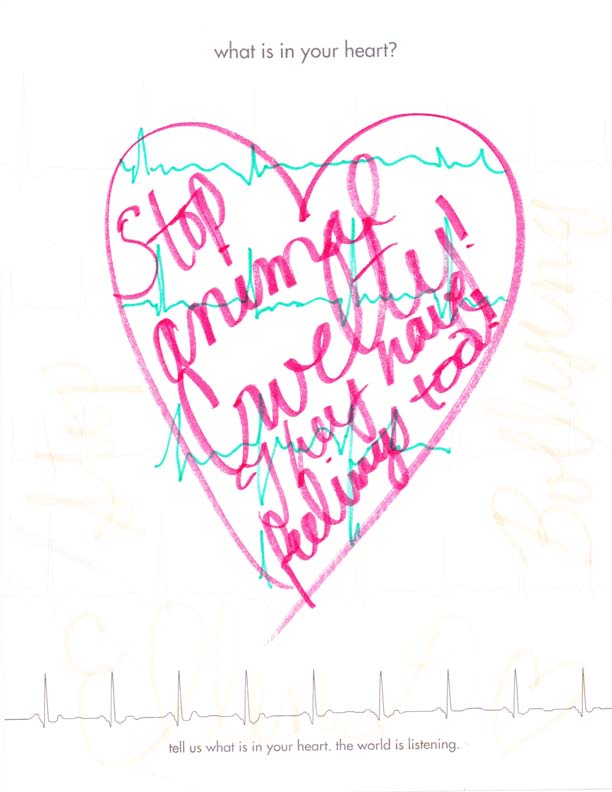 what is in your heart?
Stop
animal
cruelty!
they have
feelings too!
Stop
Bullying
tell us what is in your heart. the world is listening.